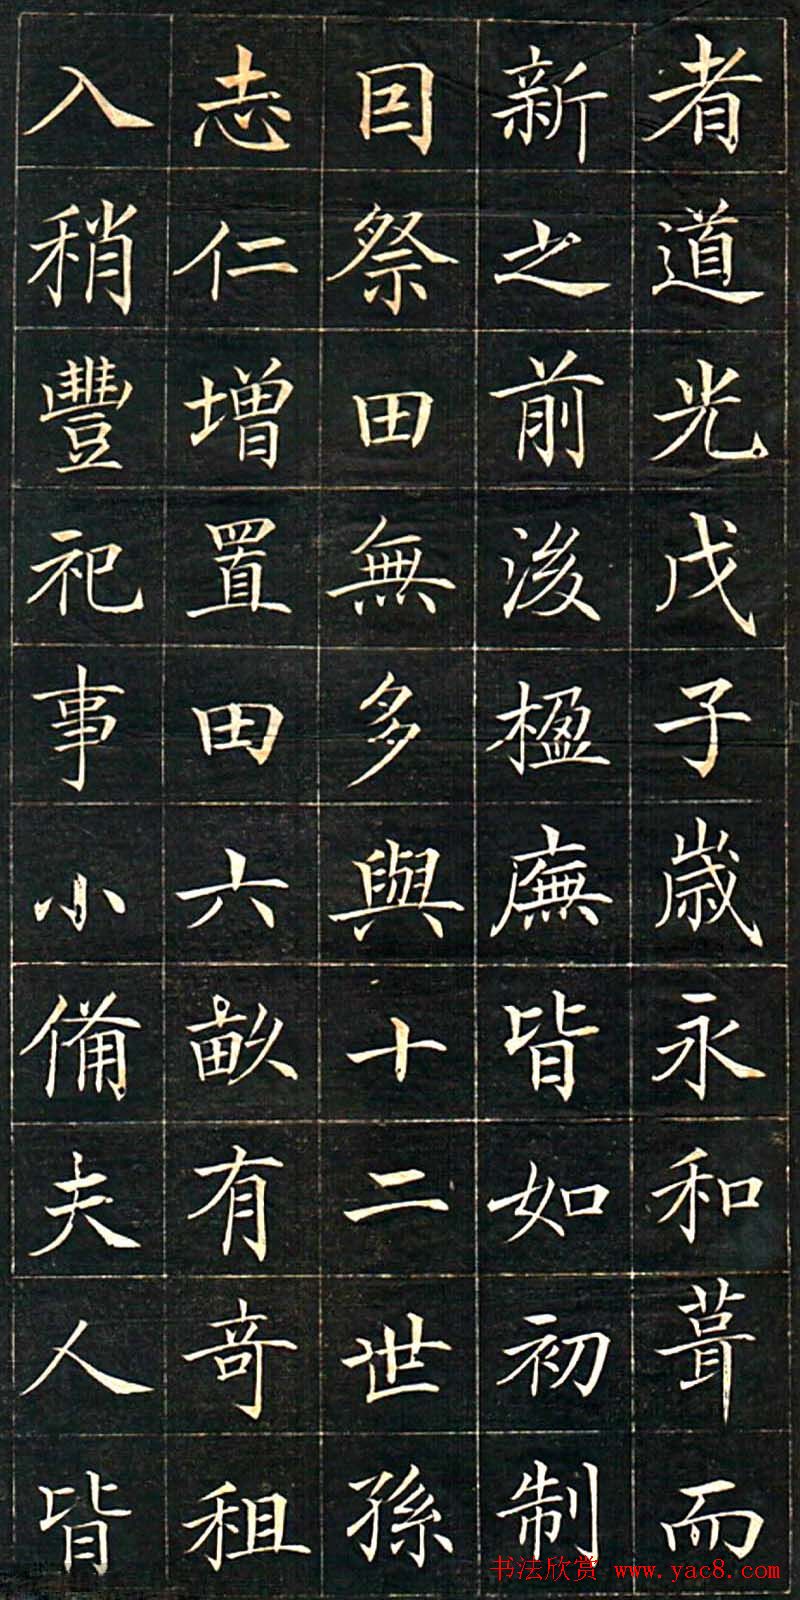 者道光戊子歲永和葺而
新之前後楹廡皆如初制
因祭田無多與十二世孫
志仁增置田六畝有奇租
入稍豐祀事小備夫人皆
书法欣赏 www.yac8.com